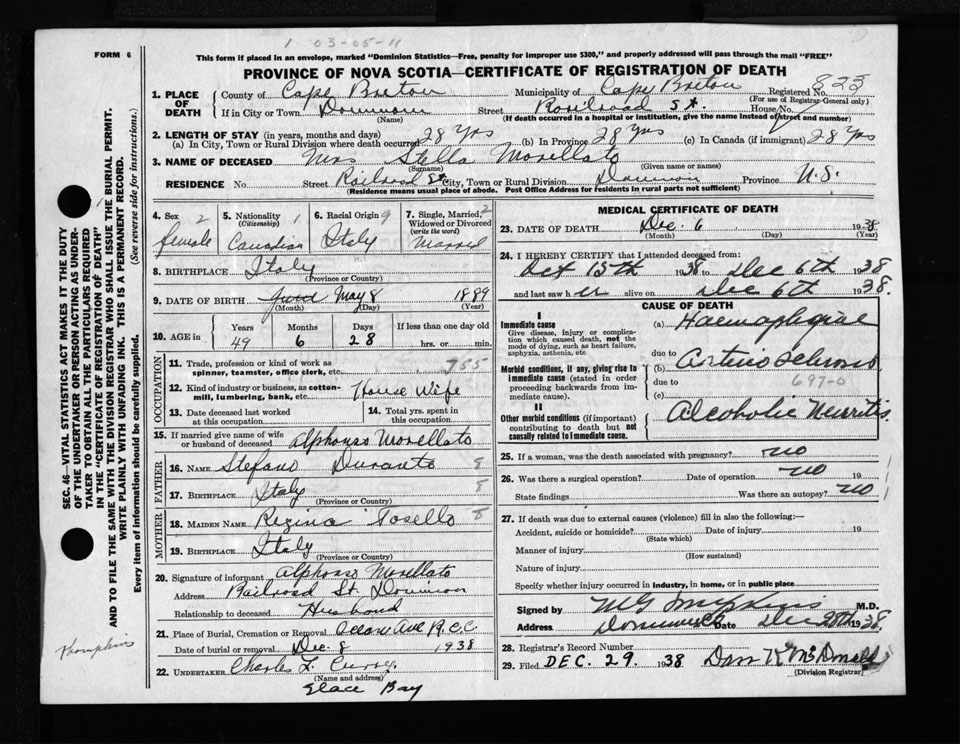 1 03-05-11
FORM 6
This form if placed in an envelope, marked "Dominion Statistics—Free, penalty for improper use $300," and properly addressed will pass through the mail "FREE"
PROVINCE OF NOVA SCOTIA—CERTIFICATE OF REGISTRATION OF DEATH
1. PLACE OF DEATH County of Cape Breton Municipality of Cape Breton Registered No. 823
(For use of Registrar-General only)
If in City or Town Dominion Street Railroad St. House No.
(Name) (If death occurred in a hospital or institution, give the name instead of street and number)
2. LENGTH OF STAY (in years, months and days)
(a) In City, Town or Rural Division where death occurred 28 Yrs (b) In Province 28 Yrs (c) In Canada (if immigrant) 28 Yrs
3. NAME OF DECEASED Mrs Stella Morellato
(Surname) (Given name or names)
RESIDENCE No. Street Railroad St City, Town or Rural Division Dominion Province N.S.
(Residence means usual place of abode. Post Office Address for residents in rural parts not sufficient)
SEC. 46—VITAL STATISTICS ACT MAKES IT THE DUTY OF THE UNDERTAKER OR PERSON ACTING AS UNDERTAKER TO OBTAIN ALL THE PARTICULARS REQUIRED IN THE "CERTIFICATE OF REGISTRATION OF DEATH" AND TO FILE THE SAME WITH THE DIVISION REGISTRAR WHO SHALL ISSUE THE BURIAL PERMIT.
WRITE PLAINLY WITH UNFADING INK. THIS IS A PERMANENT RECORD.
Every item of information should be carefully supplied. (See reverse side for instructions.)
4. Sex 2 female
5. Nationality (Citizenship) 1 Canadian
6. Racial Origin 9 Italy
7. Single, Married, Widowed or Divorced (write the word) 2 Married
8. BIRTHPLACE Italy
(Province or Country)
9. DATE OF BIRTH May 8 1889
(Month) (Day) (Year)
10. AGE in Years Months Days If less than one day old
49 6 28 hrs. or min.
OCCUPATION
11. Trade, profession or kind of work as spinner, teamster, office clerk, etc. 755
12. Kind of industry or business, as cotton-mill, lumbering, bank, etc. House Wife
13. Date deceased last worked at this occupation
14. Total yrs. spent in this occupation
15. If married give name of wife or husband of deceased Alphonso Morellato
FATHER
16. NAME Stefano Durante 8
17. BIRTHPLACE Italy 8
(Province or Country)
MOTHER
18. MAIDEN NAME Regina Tosello 8
19. BIRTHPLACE Italy
(Province or Country)
20. Signature of informant Alphonso Morellato
Address Railroad St. Dominion
Relationship to deceased Husband
21. Place of Burial, Cremation or Removal Ocean Ave R.C.C
Date of burial or removal Dec. 8 1938
22. UNDERTAKER Charles L Curry
(Name and address)
Glace Bay
thompkins
MEDICAL CERTIFICATE OF DEATH
23. DATE OF DEATH Dec. 6 1938
(Month) (Day) (Year)
24. I HEREBY CERTIFY that I attended deceased from:
Oct 15th 1938 to Dec 6th 1938
and last saw her alive on Dec 6th 1938
CAUSE OF DEATH
I
Immediate cause
Give disease, injury or complication which caused death, not the mode of dying, such as heart failure, asphyxia, asthenia, etc.
(a) Haemaplegiae
due to
Morbid conditions, if any, giving rise to immediate cause (stated in order proceeding backwards from immediate cause).
(b) Arterio Sclerosis
due to 697-0
(c)
II
Other morbid conditions (if important) contributing to death but not causally related to immediate cause.
Alcoholic Neuritis
25. If a woman, was the death associated with pregnancy? no
26. Was there a surgical operation? no Date of operation 19
State findings Was there an autopsy? no
27. If death was due to external causes (violence) fill in also the following:—
Accident, suicide or homicide? Date of injury 19
(State which)
Manner of injury
(How sustained)
Nature of injury
Specify whether injury occurred in industry, in home, or in public place
Signed by M.D.
Address Dominion CB Date Dec 30th 1938
28. Registrar's Record Number
29. Filed DEC. 29. 1938 Dan R McDonald
(Division Registrar)